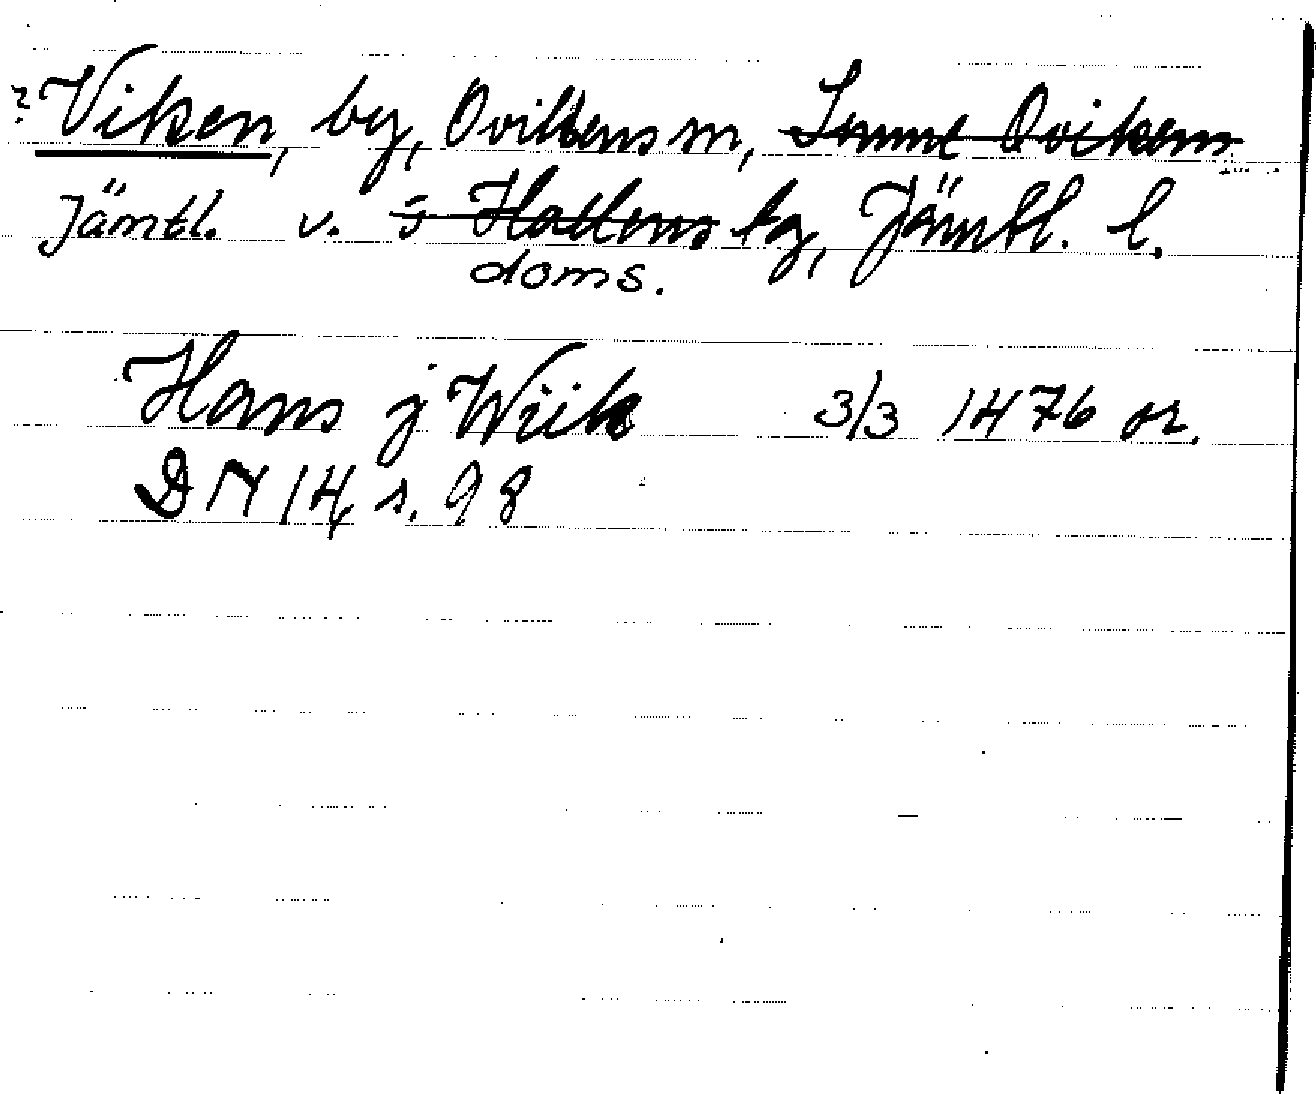 ? Viken, by, Ovikens sn, Sunne Ovikens
Jämtl. v. o Hallens tg, Jämtl. l.
doms.
Hans j Wiik 3/3 1476 or.
DN 14 s. 98